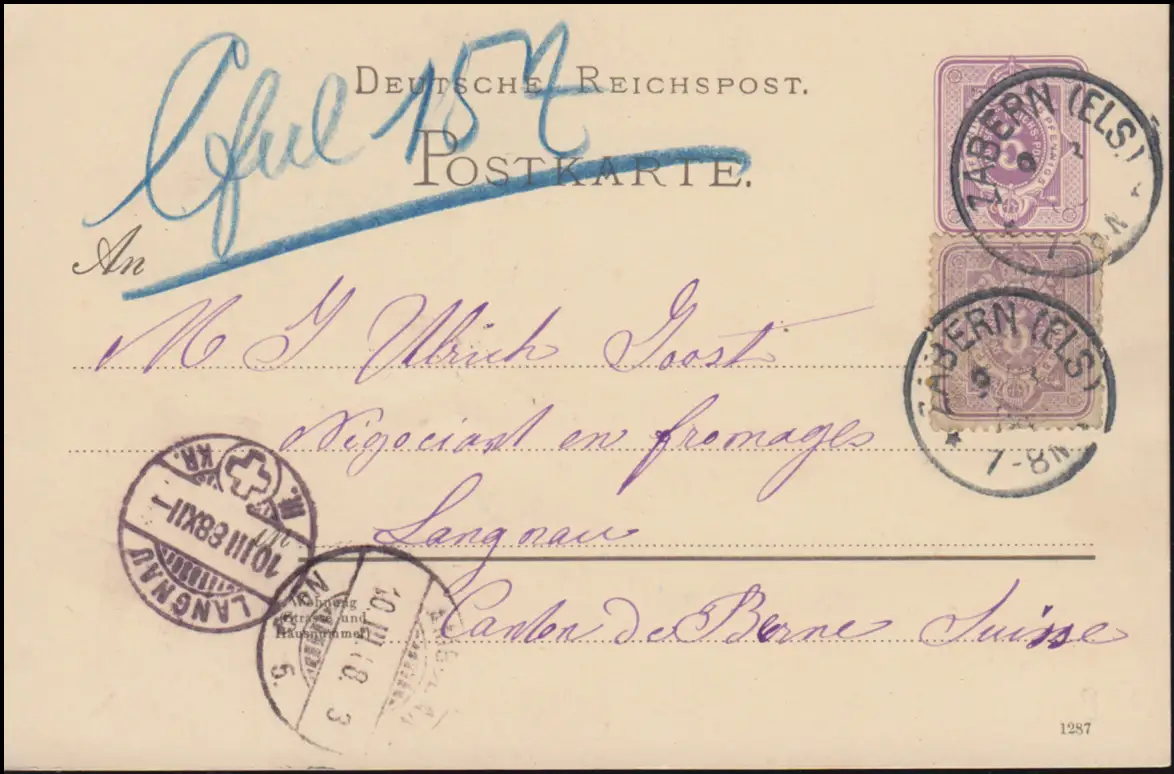 157
DEUTSCHE REICHSPOST.
POSTKARTE.
ZABERN (ELS)
9 3
7-8N
An
ZABERN (ELS)
9 3
7-8N
M J Ulrich Joost
Négociant en fromages
Langnau
LANGNAU
10 III 88 XII
10.III 88. 3
Wohnung
(Strasse und
Hausnummer)
Canton de Berne Suisse
1287